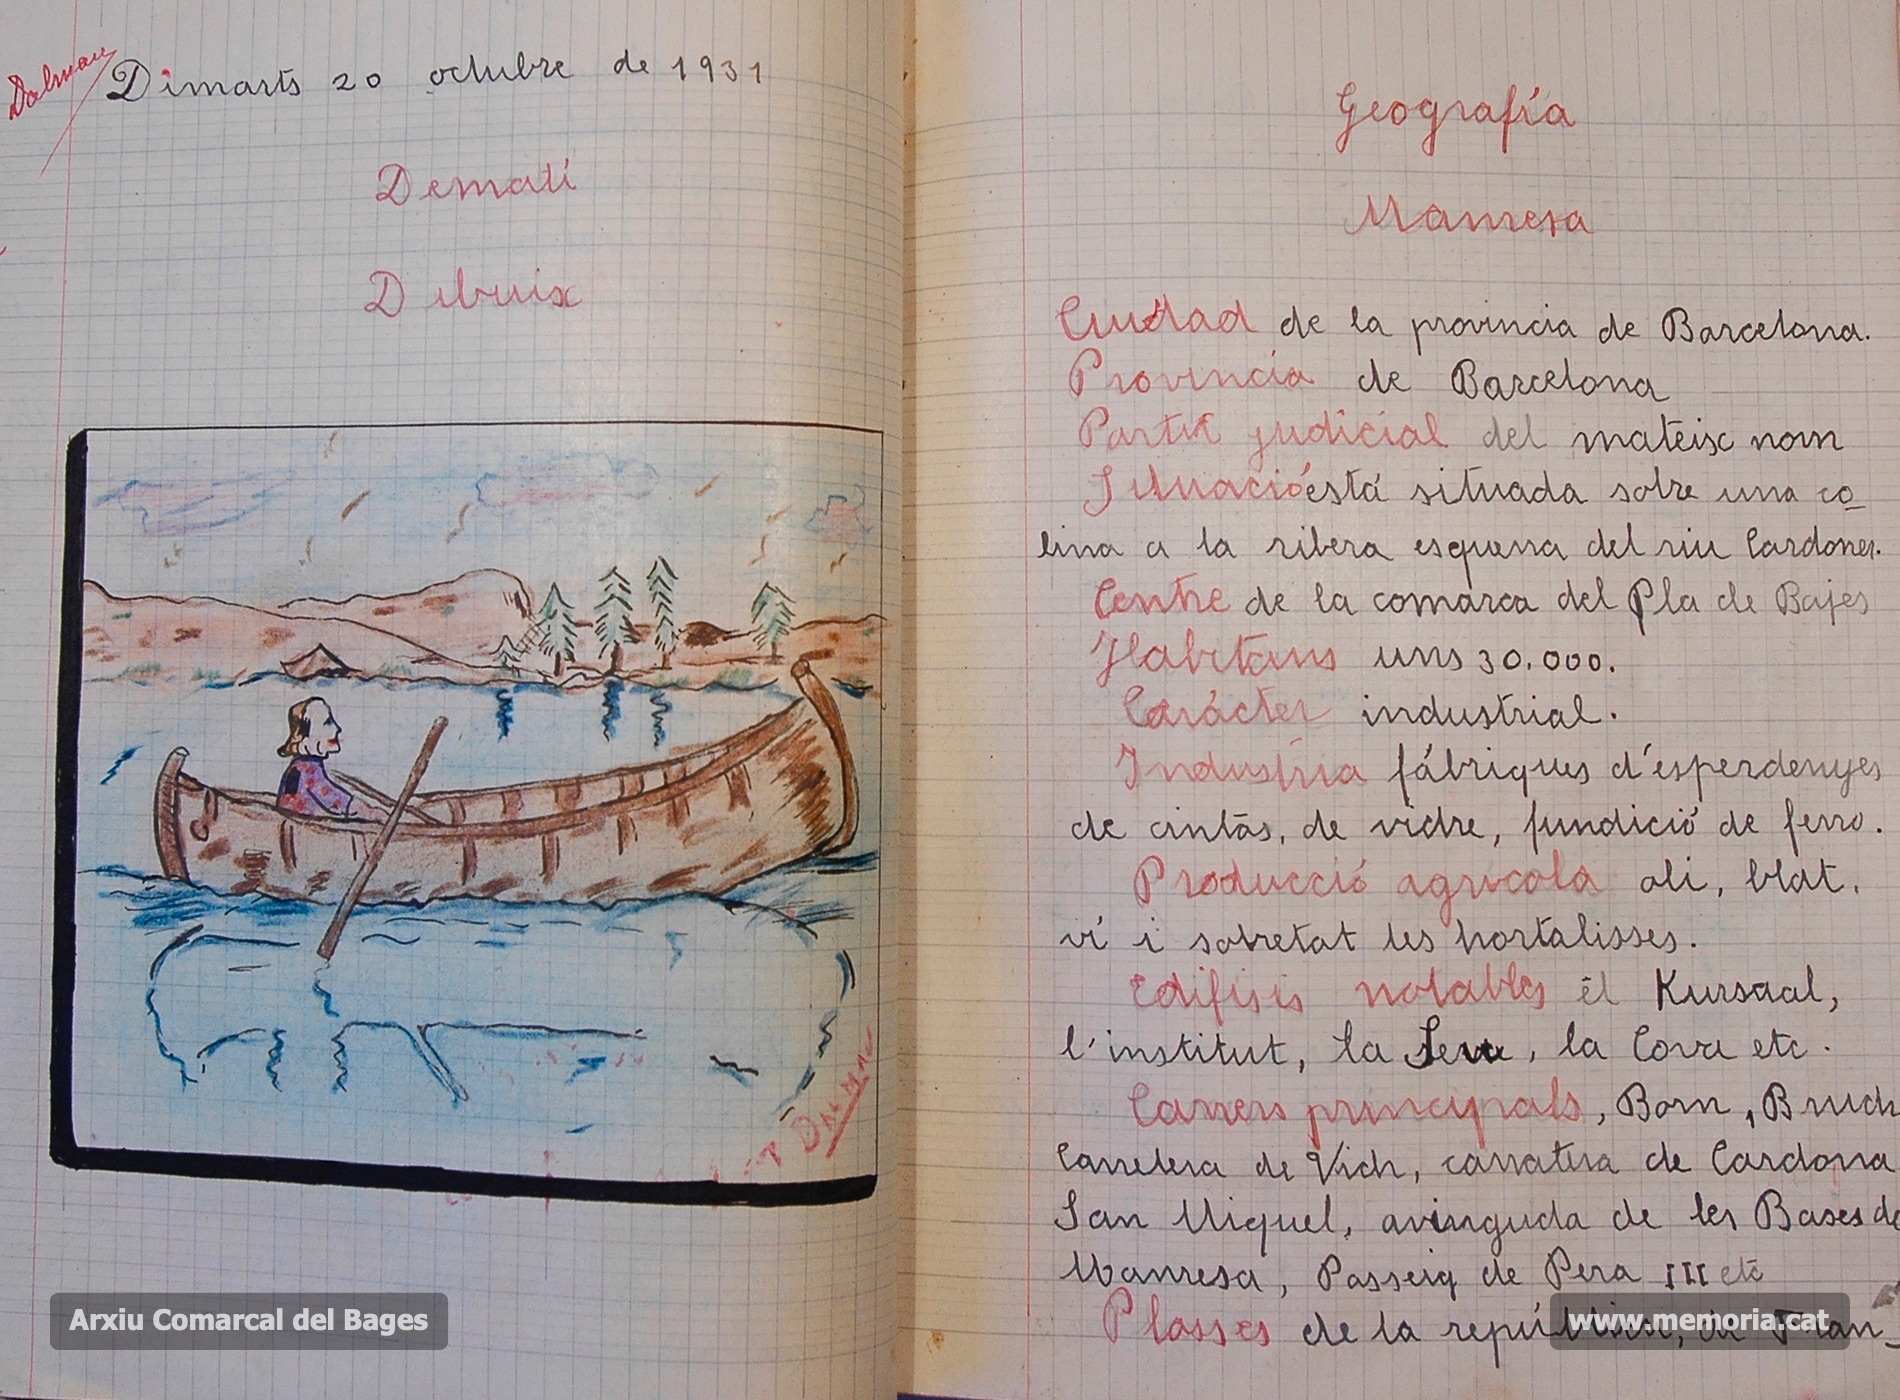 Dalmau
Dimarts 20 octubre de 1931
Dematí
Dibuix
DALMAU
Arxiu Comarcal del Bages
Geografía
Manresa
Ciudad de la provincia de Barcelona.
Provincia de Barcelona
Partit judicial del mateix nom
Situació está situada sobre una co-
lina a la ribera esquerra del riu Cardoner.
Centre de la comarca del Pla de Bajes
Habitans uns 30.000.
Carácter industrial.
Industria fábriques d'esperdenyes
de cintas, de vidre, fundició de ferro.
Producció agrícola oli, blat,
ví i sobretat les hortalisses.
Edifisis notables él Kursaal,
l'institut, la Seu, la Cova etc.
Carrers principals, Born, Bruch
Carretera de Vich, carratera de Cardona
San Miquel, avinguda de les Bases de
Manresa, Passeig de Pera III etc
Plasses de la república, de Fran-
www.memoria.cat